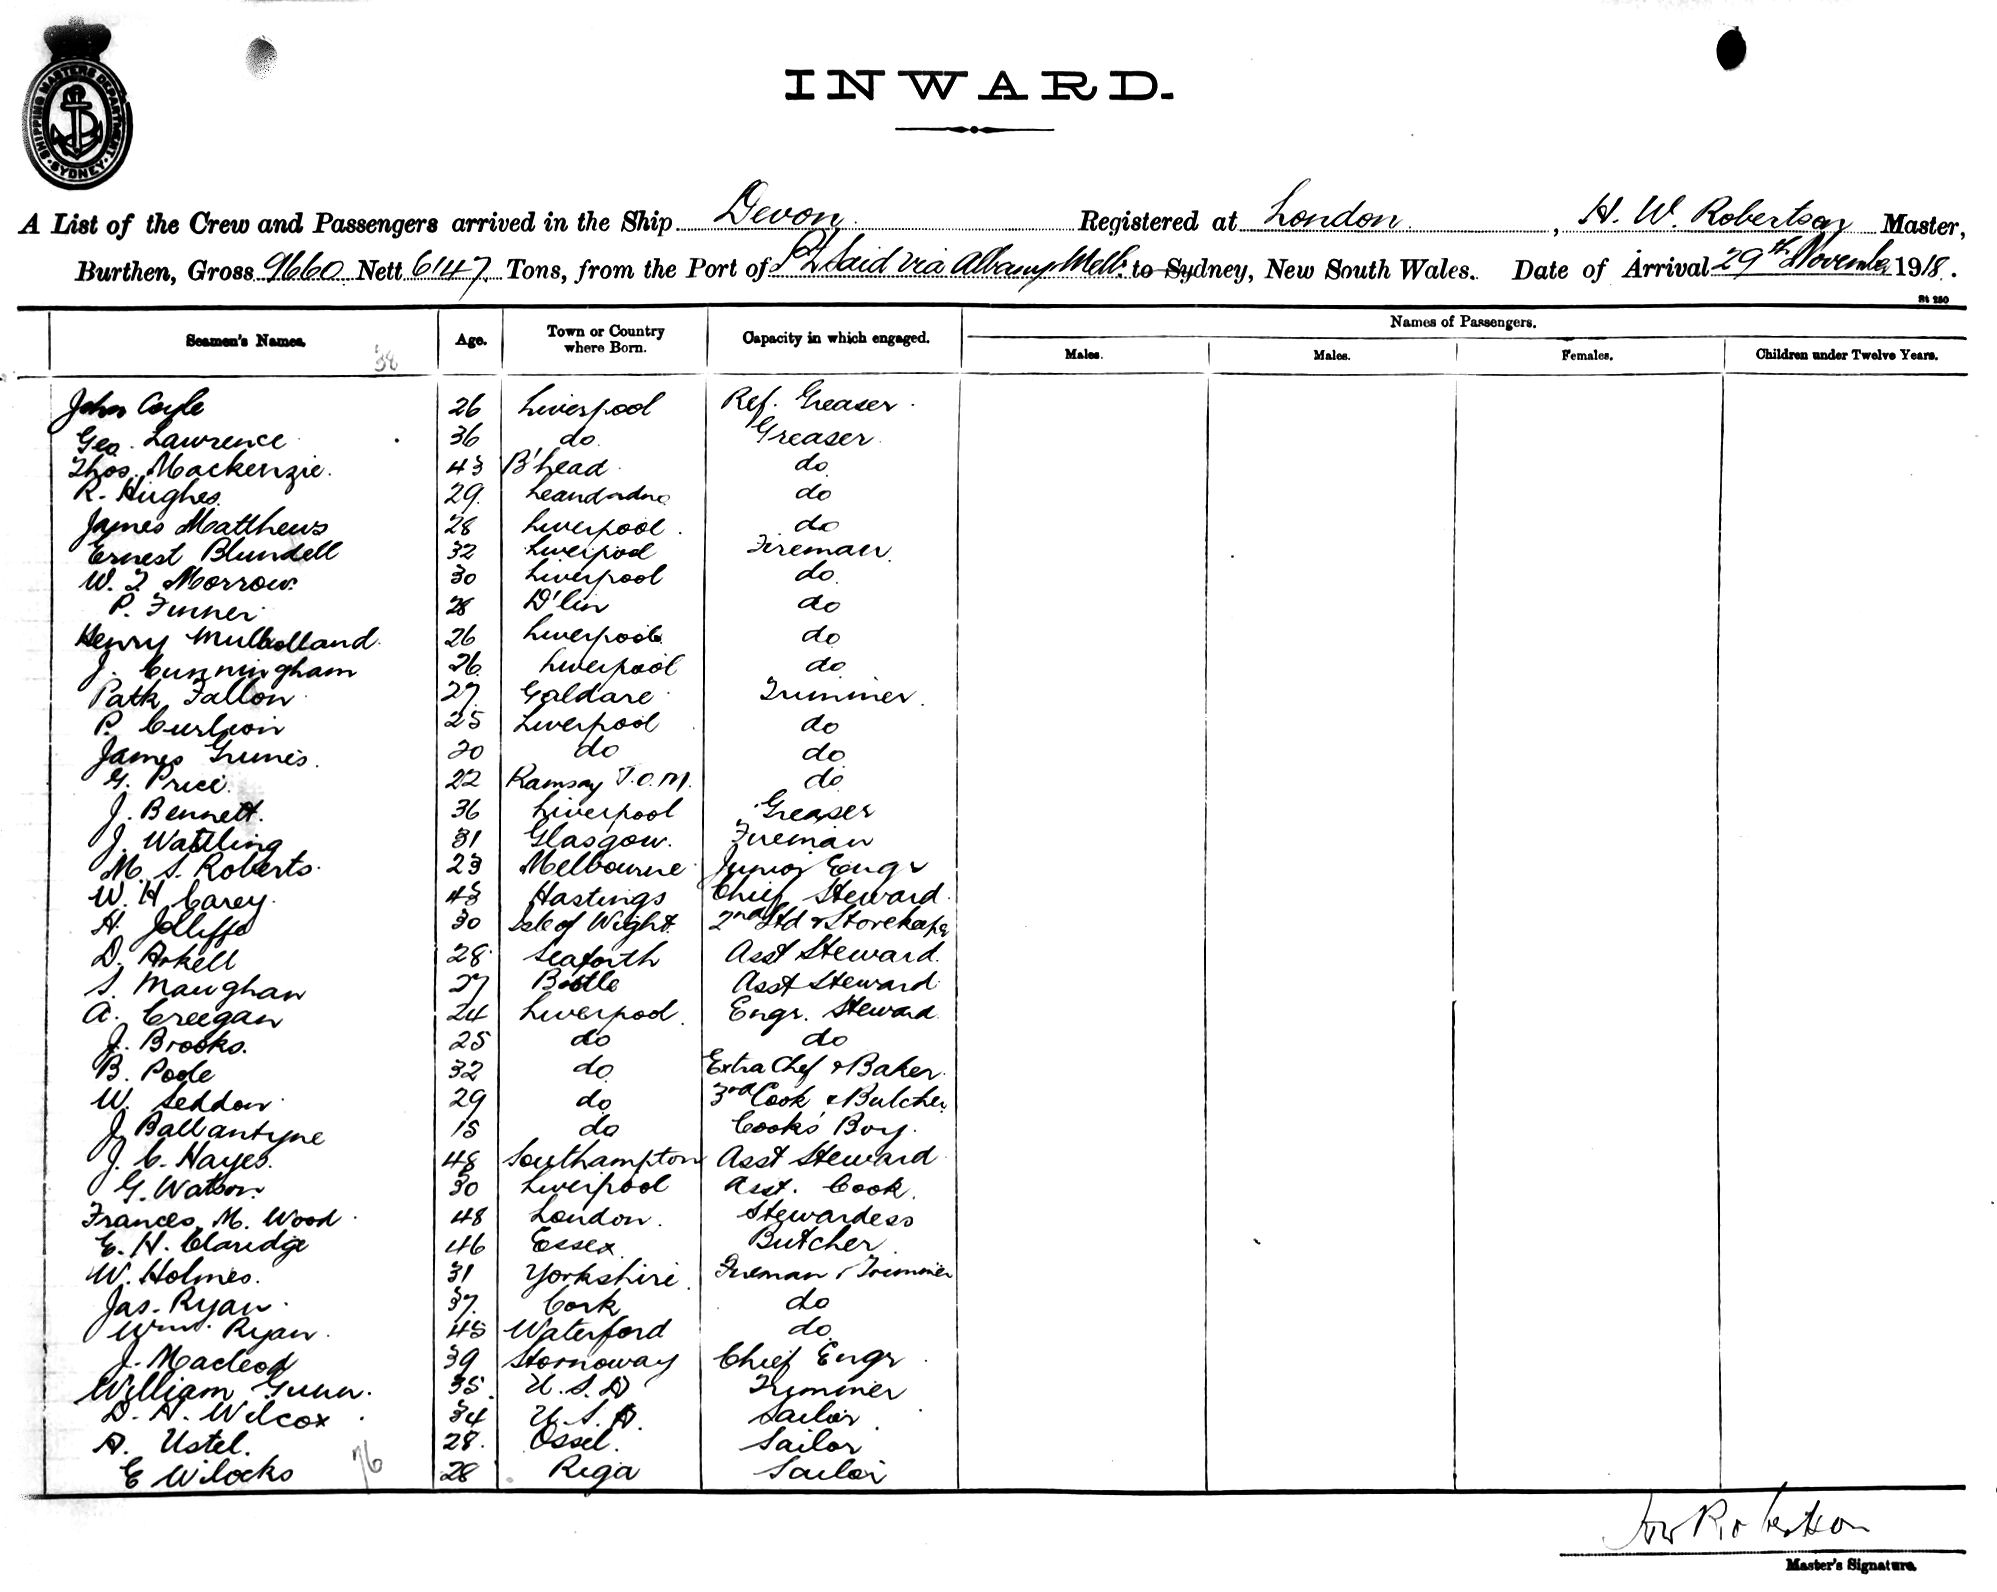 SHIPPING MASTERS DEPARTMENT · SYDNEY ·
INWARD.
A List of the Crew and Passengers arrived in the Ship Devon Registered at London, H. W. Robertson Master,
Burthen, Gross 9660 Nett 6147 Tons, from the Port of Pt Said via Albany Melb. to Sydney, New South Wales. Date of Arrival 29th November 1918.
St 250
Seamen's Names. Age. Town or Country where Born. Capacity in which engaged. Names of Passengers.
Males. Males. Females. Children under Twelve Years.
38
John Coyle 26 Liverpool Ref. Greaser.
Geo. Lawrence 36 do Greaser
Thos. Mackenzie. 43 B'head do
R. Hughes. 29. do
James Matthews 28 Liverpool. do
Ernest Blundell 32 Liverpool Fireman.
W. J. Morrow. 30 Liverpool do.
P. 28 D'lin do
Henry Mulholland. 26 Liverpool do
J. Cunningham 26. Liverpool do
Patk Fallon 27. Galdare Trimmer.
P. 25 Liverpool do
James 20 do do
G. Price. 22 Ramsay I.O.M. do
J. Bennett. 36 Liverpool Greaser
J. Watling 31 Glasgow. Fireman
M. S. Roberts. 23 Melbourne Junior Engr
W. H Carey. 43 Hastings Chief Steward.
H. Jolliffe 30 Isle of Wight. 2nd Std & Storekeeper
D. Arkell 28 Seaforth Asst Steward.
S. Maughan 27 Bootle Asst Steward.
A. Creegan 24 Liverpool. Engr. Steward
J. Brooks. 25 do do
B. Poole 32 do Extra Chef & Baker.
W. Seddon 29 do 3rd Cook & Butcher
J Ballantyne 15 do Cook's Boy.
J. C. Hayes. 48 Southampton Asst Steward
G. Watson. 30 Liverpool Asst. Cook.
Frances M. Wood. 48 London. Stewardess
E. H. Claridge 46 Essex Butcher.
W. Holmes. 31 Yorkshire. Fireman & Trimmer
Jas. Ryan. 37. Cork do
Wm. Ryan. 45 Waterford do.
J. Macleod 39 Stornoway Chief Engr.
William Gunn. 35. U.S.A Trimmer
D. H. Wilcox. 34 U.S.A. Sailor.
A. Ustel. 28. Ossel. Sailor
E Wilocks 28 Riga Sailor
76
HW Robertson
Master's Signature.